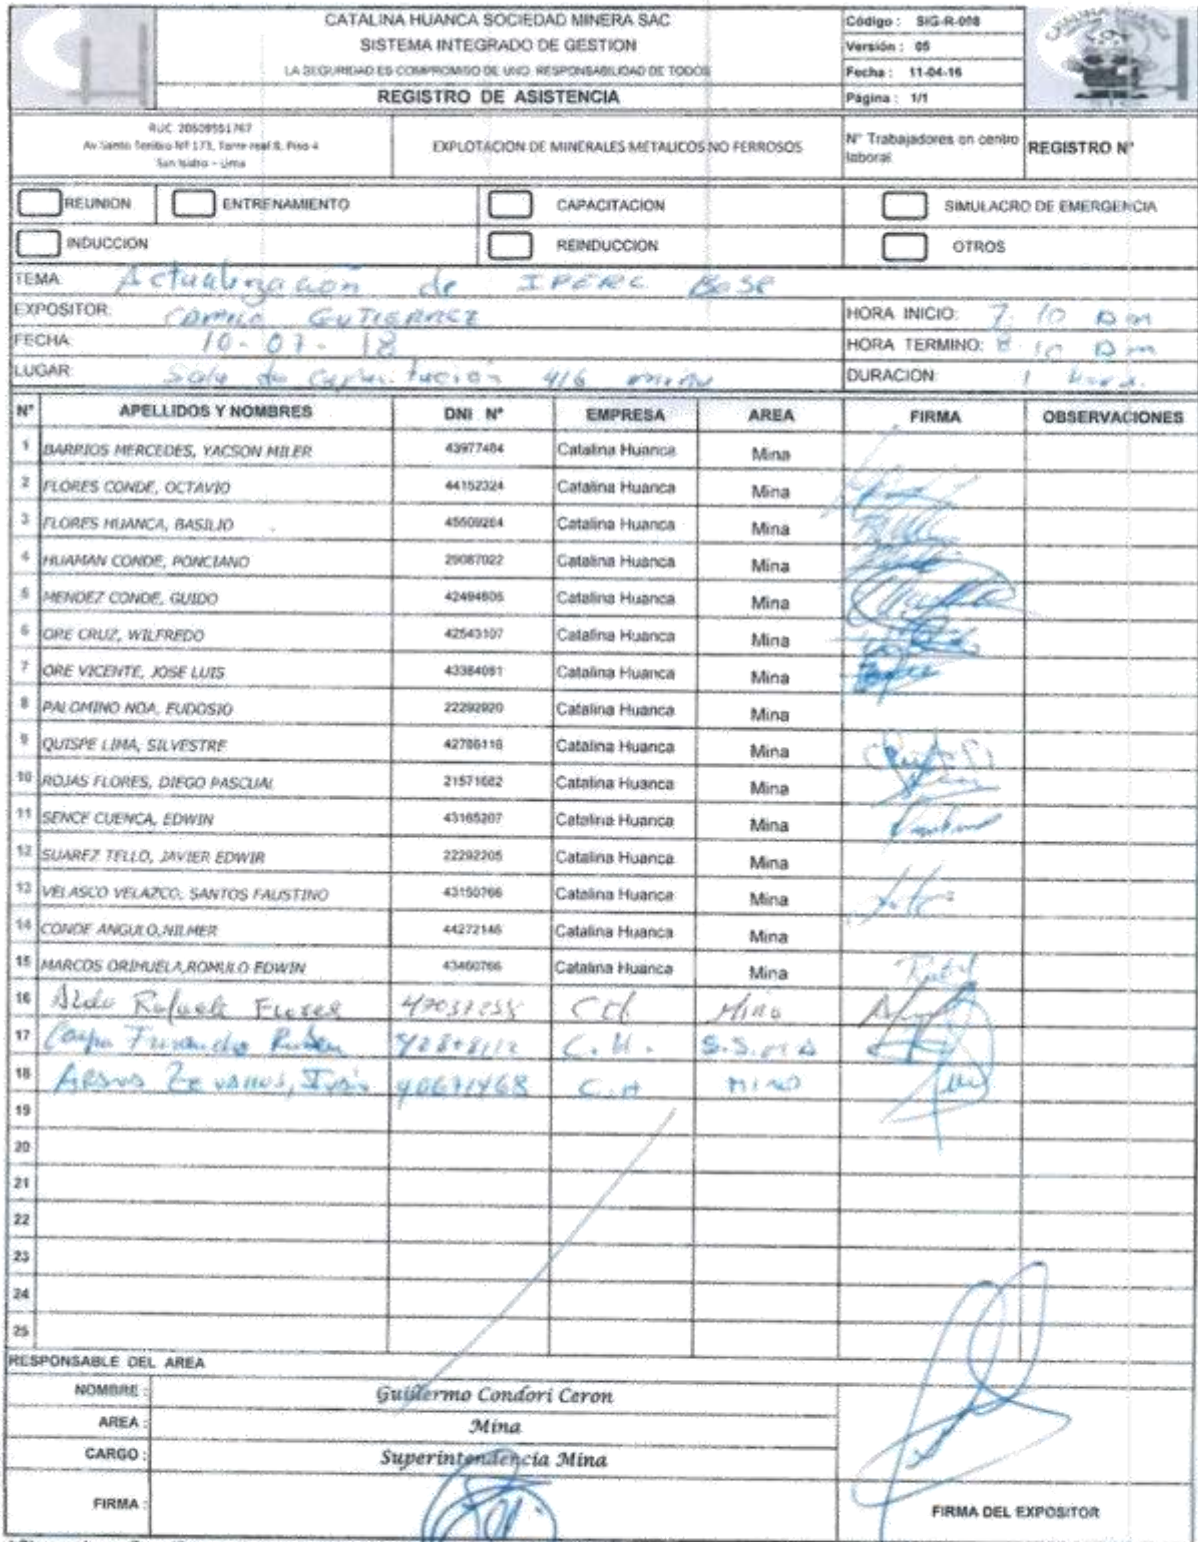 CATALINA HUANCA SOCIEDAD MINERA SAC
SISTEMA INTEGRADO DE GESTION
LA SEGURIDAD ES COMPROMISO DE UNO RESPONSABILIDAD DE TODOS
REGISTRO DE ASISTENCIA
Código : SIG-R-008
Versión : 05
Fecha : 11-04-16
Página : 1/1
CATALINA HUANCA
RUC 20509551767
Av Santo Toribio Nº 173, Torre real 8, Piso 4
San Isidro - Lima
EXPLOTACION DE MINERALES METALICOS NO FERROSOS
N° Trabajadores en centro laboral
REGISTRO N°
REUNION ENTRENAMIENTO CAPACITACION SIMULACRO DE EMERGENCIA
INDUCCION REINDUCCION OTROS
TEMA: Actualización de IPERC Base
EXPOSITOR: CAMILO GUTIERREZ HORA INICIO: 7:10 Am
FECHA: 10-07-18 HORA TERMINO: 8:10 Am
LUGAR: Sala de Capacitación 416 mina DURACION: 1 Hora.
N° APELLIDOS Y NOMBRES DNI N° EMPRESA AREA FIRMA OBSERVACIONES
1 BARRIOS MERCEDES, YACSON MILER 43977484 Catalina Huanca Mina
2 FLORES CONDE, OCTAVIO 44152324 Catalina Huanca Mina
3 FLORES HUANCA, BASILIO Catalina Huanca Mina
4 HUAMAN CONDE, PONCIANO 29087022 Catalina Huanca Mina
5 MENDEZ CONDE, GUIDO 42494605 Catalina Huanca Mina
6 ORE CRUZ, WILFREDO 42543107 Catalina Huanca Mina
7 ORE VICENTE, JOSE LUIS 43364051 Catalina Huanca Mina
8 PALOMINO NOA, EUDOSIO 22292920 Catalina Huanca Mina
9 QUISPE LIMA, SILVESTRE 42786116 Catalina Huanca Mina
10 ROJAS FLORES, DIEGO PASCUAL 21571682 Catalina Huanca Mina
11 SENCE CUENCA, EDWIN 43165207 Catalina Huanca Mina
12 SUAREZ TELLO, JAVIER EDWIR 22292205 Catalina Huanca Mina
13 VELASCO VELAZCO, SANTOS FAUSTINO 43150766 Catalina Huanca Mina
14 CONDE ANGULO,NILMER 44272146 Catalina Huanca Mina
15 MARCOS ORIHUELA,ROMULO EDWIN 43460766 Catalina Huanca Mina
16 Aldo Rafaele Flores CH Mina
17 Ruben C.H.
18 Ivan 40671468 C.H MINA
19
20
21
22
23
24
25
RESPONSABLE DEL AREA
NOMBRE : Guillermo Condori Ceron
AREA : Mina
CARGO : Superintendencia Mina
FIRMA :
FIRMA DEL EXPOSITOR